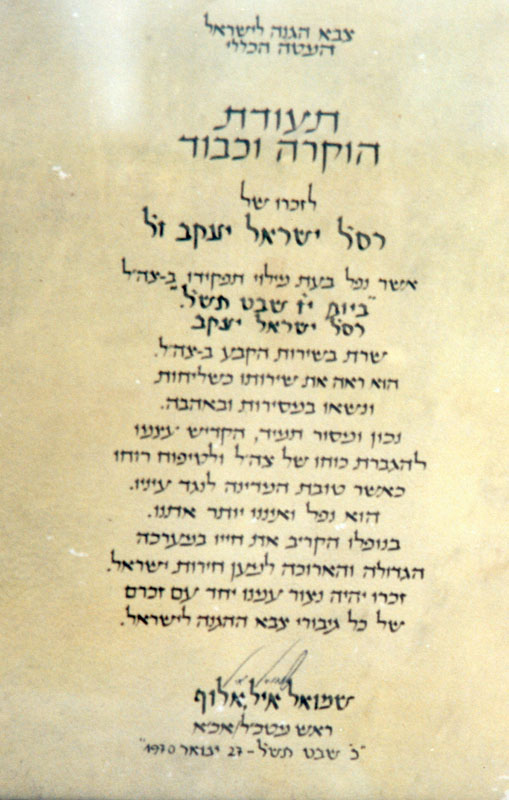 צבא הגנה לישראל
המטה הכללי
תעודת
הוקרה וכבוד
לזכרו של
רס"ל ישראל יעקב ז"ל
אשר נפל בעת מילוי תפקידו ב-צה"ל
"ביום י"ז שבט תש"ל."
רס"ל ישראל יעקב
שרת בשירות הקבע ב-צה"ל.
הוא ראה את שירותו כשליחות
ונשאו במסירות ובאהבה.
נכון ומסור תמיד, הקדיש עצמו
להגברת כוחו של צה"ל ולטיפוח רוחו
כאשר טובת המדינה לנגד עיניו.
הוא נפל ואיננו יותר אתנו.
בנופלו הקריב את חייו במערכה
הגדולה והארוכה למען חירות ישראל.
זכרו יהיה נצור עמנו יחד עם זכרם
של כל גיבורי צבא ההגנה לישראל.
שמואל איל, אלוף
ראש מטכ"ל/אכ"א
"כ' שבט תש"ל - 27 ינואר 1970"